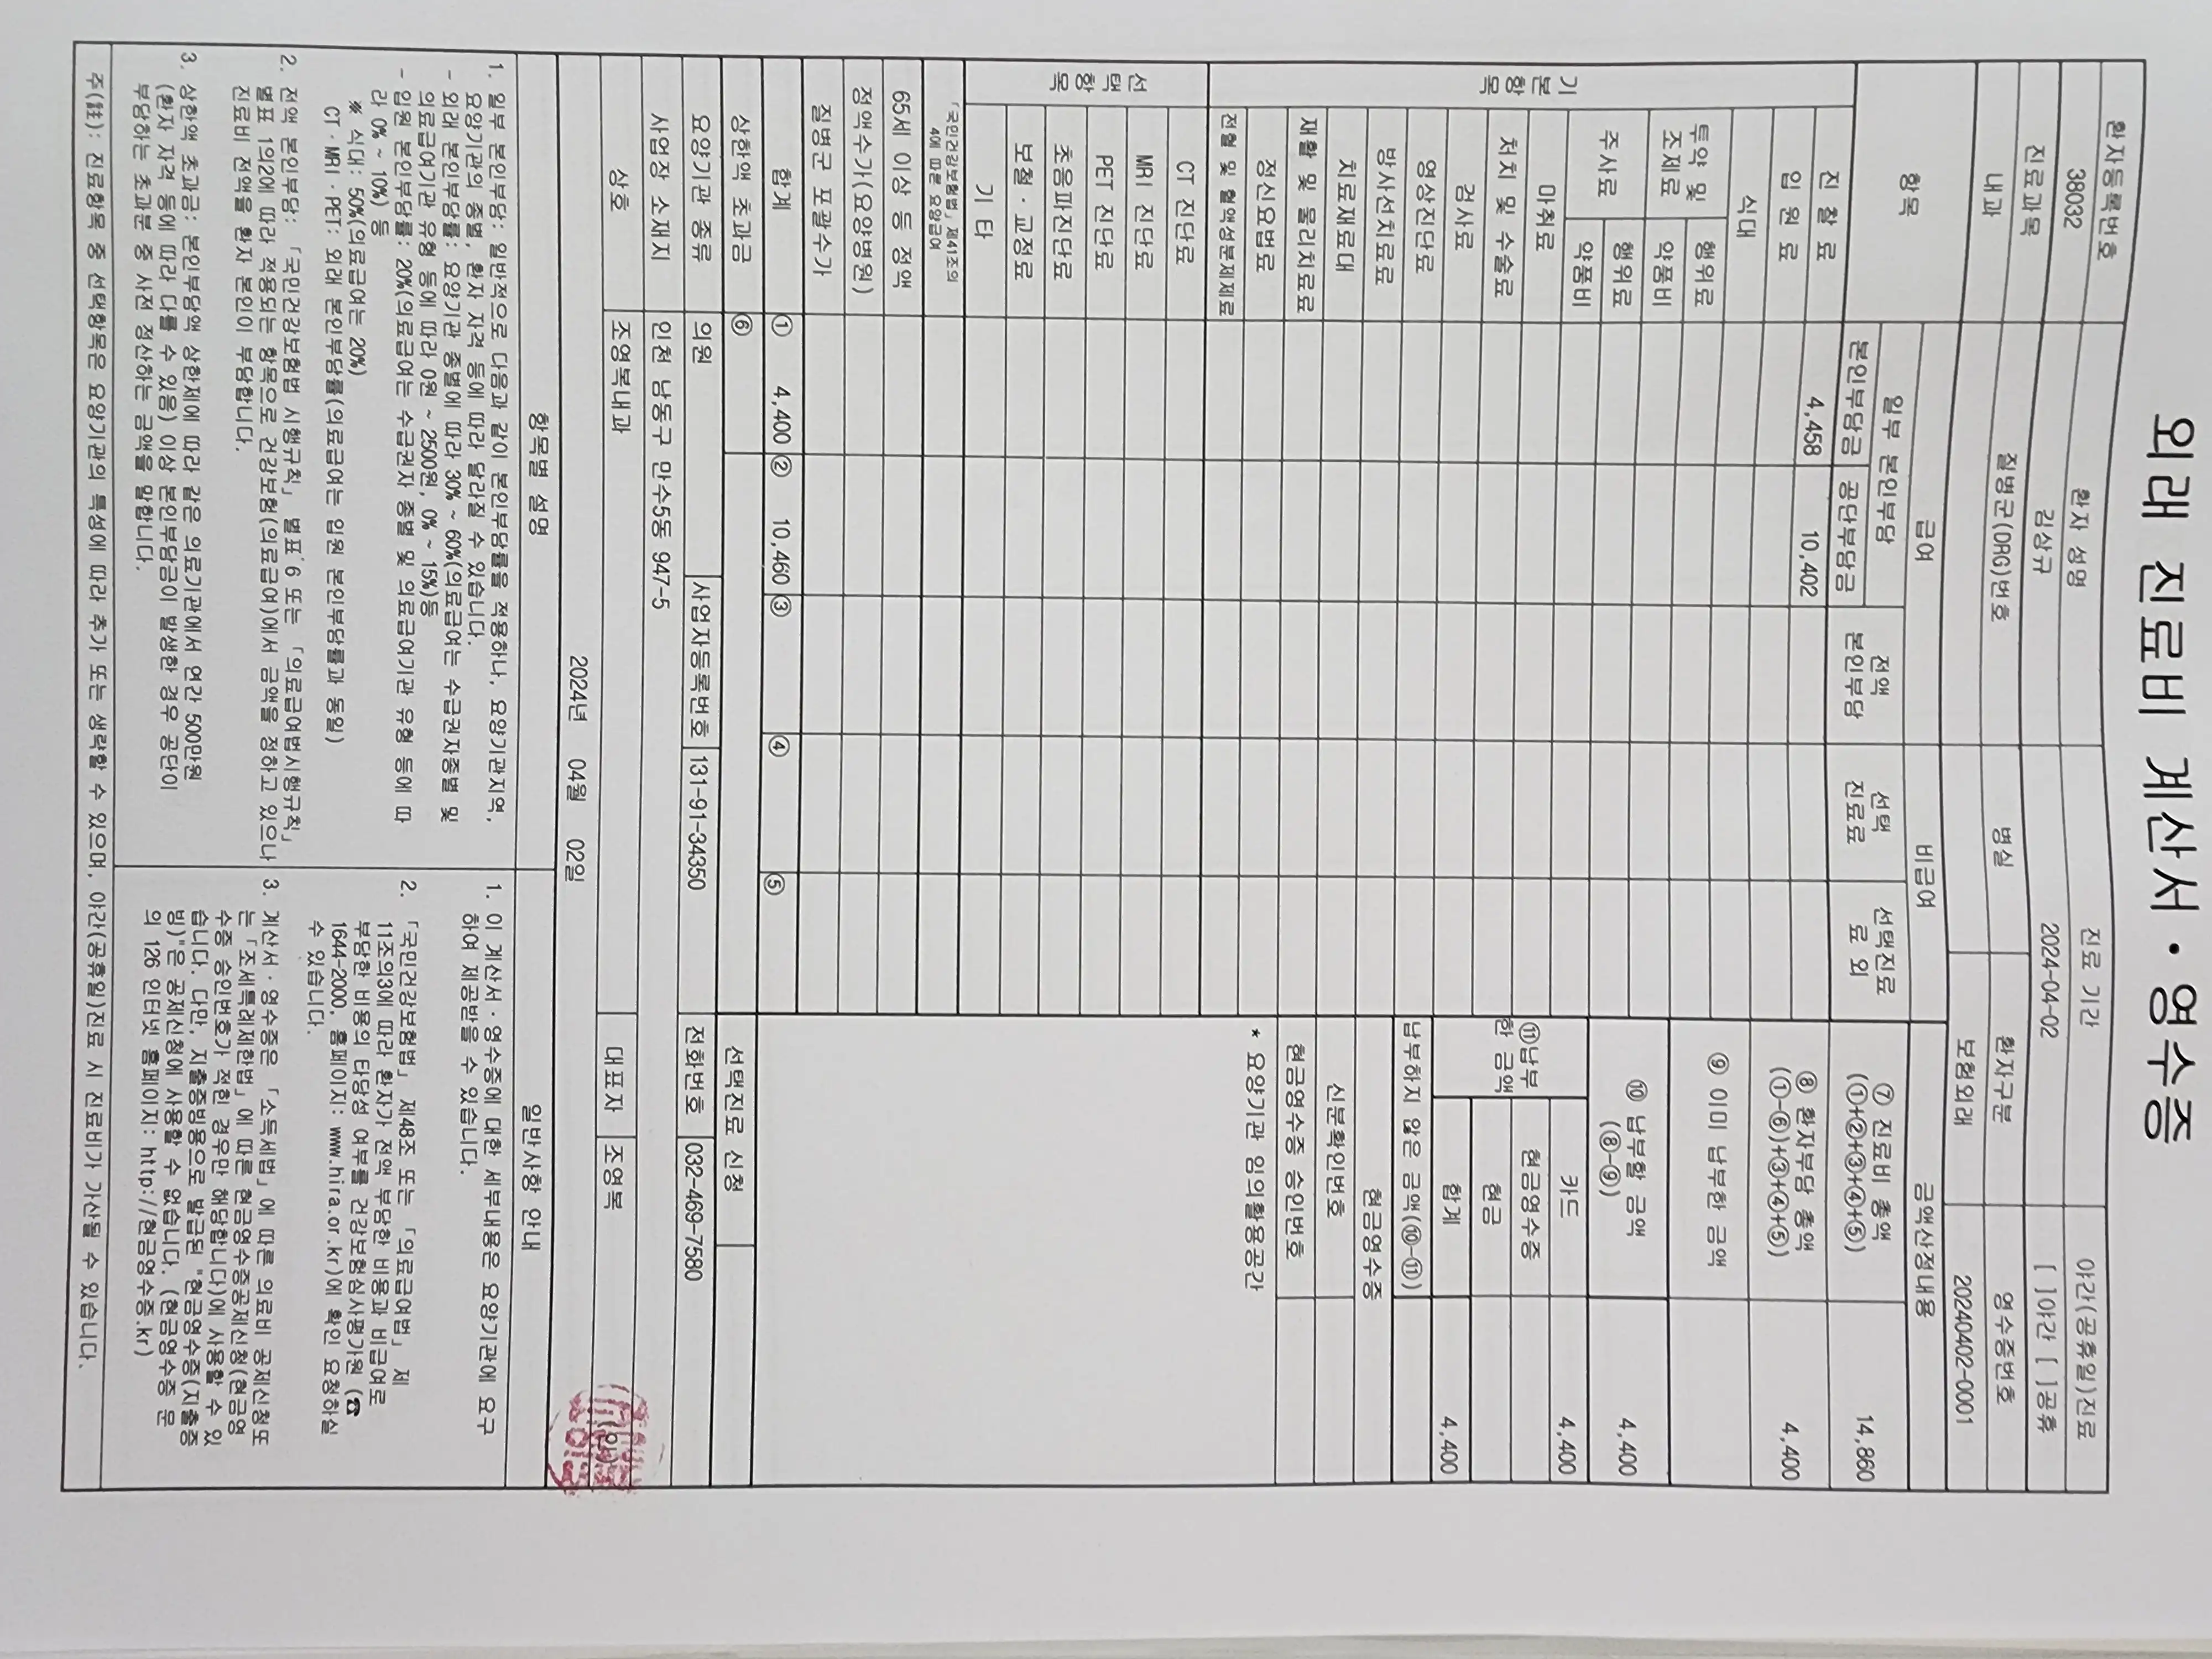 외래 진료비 계산서 · 영수증
환자등록번호 환자 성명 진료 기간 야간(공휴일)진료
38032 김상규 2024-04-02 [ ]야간 [ ]공휴
진료과목 질병군(DRG)번호 병실 환자구분 영수증번호
내과 보험외래 20240402-0001
항목 급여 비급여 금액산정내용
일부 본인부담 전액 본인부담 선택 진료료 선택진료료 외
본인부담금 공단부담금
⑦ 진료비 총액 (①+②+③+④+⑤) 14,860
기본항목
진 찰 료 4,458 10,402
입 원 료
⑧ 환자부담 총액 (①-⑥)+③+④+⑤) 4,400
식대
투약 및 조제료 행위료
약품비
⑨ 이미 납부한 금액
주사료 행위료
약품비
⑩ 납부할 금액 (⑧-⑨) 4,400
마취료
처치 및 수술료
검사료
영상진단료
⑪납부한 금액 카드 4,400
현금영수증
현금
합계 4,400
방사선치료료
납부하지 않은 금액(⑩-⑪)
치료재료대
현금영수증
재활 및 물리치료료
신분확인번호
정신요법료
현금영수증 승인번호
전혈 및 혈액성분제제료
* 요양기관 임의활용공간
선택항목
CT 진단료
MRI 진단료
PET 진단료
초음파진단료
보철 · 교정료
기 타
「국민건강보험법」 제41조의
4에 따른 요양급여
65세 이상 등 정액
정액수가(요양병원)
질병군 포괄수가
합계 ① 4,400 ② 10,460 ③ ④ ⑤
상한액 초과금 ⑥ 선택진료 신청
요양기관 종류 의원 사업자등록번호 131-91-34350 전화번호 032-469-7580
사업장 소재지 인천 남동구 만수5동 947-5
상호 조영복내과 대표자 조영복 (인)
2024년 04월 02일
항목별 설명
1. 일부 본인부담: 일반적으로 다음과 같이 본인부담률을 적용하나, 요양기관지역,
요양기관의 종별, 환자 자격 등에 따라 달라질 수 있습니다.
- 외래 본인부담률: 요양기관 종별에 따라 30% ~ 60%(의료급여는 수급권자종별 및
의료급여기관 유형 등에 따라 0원 ~ 2500원, 0% ~ 15%)등
- 입원 본인부담률: 20%(의료급여는 수급권자 종별 및 의료급여기관 유형 등에 따
라 0% ~ 10%) 등
※ 식대: 50%(의료급여는 20%)
CT · MRI · PET: 외래 본인부담률(의료급여는 입원 본인부담률과 동일)
2. 전액 본인부담: 「국민건강보험법 시행규칙」 별표 6 또는 「의료급여법시행규칙」
별표 1의2에 따라 적용되는 항목으로 건강보험(의료급여)에서 금액을 정하고 있으나
진료비 전액을 환자 본인이 부담합니다.
3. 상한액 초과금: 본인부담액 상한제에 따라 같은 의료기관에서 연간 500만원
(환자 자격 등에 따라 다를 수 있음) 이상 본인부담금이 발생한 경우 공단이
부담하는 초과분 중 사전 정산하는 금액을 말합니다.
일반사항 안내
1. 이 계산서 · 영수증에 대한 세부내용은 요양기관에 요구
하여 제공받을 수 있습니다.
2. 「국민건강보험법」 제48조 또는 「의료급여법」 제
11조의3에 따라 환자가 전액 부담한 비용과 비급여로
부담한 비용의 타당성 여부를 건강보험심사평가원 (☎
1644-2000, 홈페이지: www.hira.or.kr)에 확인 요청하실
수 있습니다.
3. 계산서 · 영수증은 「소득세법」에 따른 의료비 공제신청또
는「조세특례제한법」에 따른 현금영수증공제신청(현금영
수증 승인번호가 적힌 경우만 해당합니다)에 사용할 수 있
습니다. 다만, 지출증빙용으로 발급된 "현금영수증(지출증
빙)"은 공제신청에 사용할 수 없습니다. (현금영수증 문
의 126 인터넷 홈페이지: http://현금영수증.kr)
주(註): 진료항목 중 선택항목은 요양기관의 특성에 따라 추가 또는 생략할 수 있으며, 야간(공휴일)진료 시 진료비가 가산될 수 있습니다.